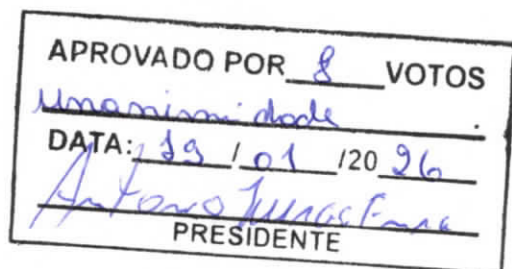 APROVADO POR 8 VOTOS
Unanimidade.
DATA: 19 / 01 /20 26
Antonio
PRESIDENTE